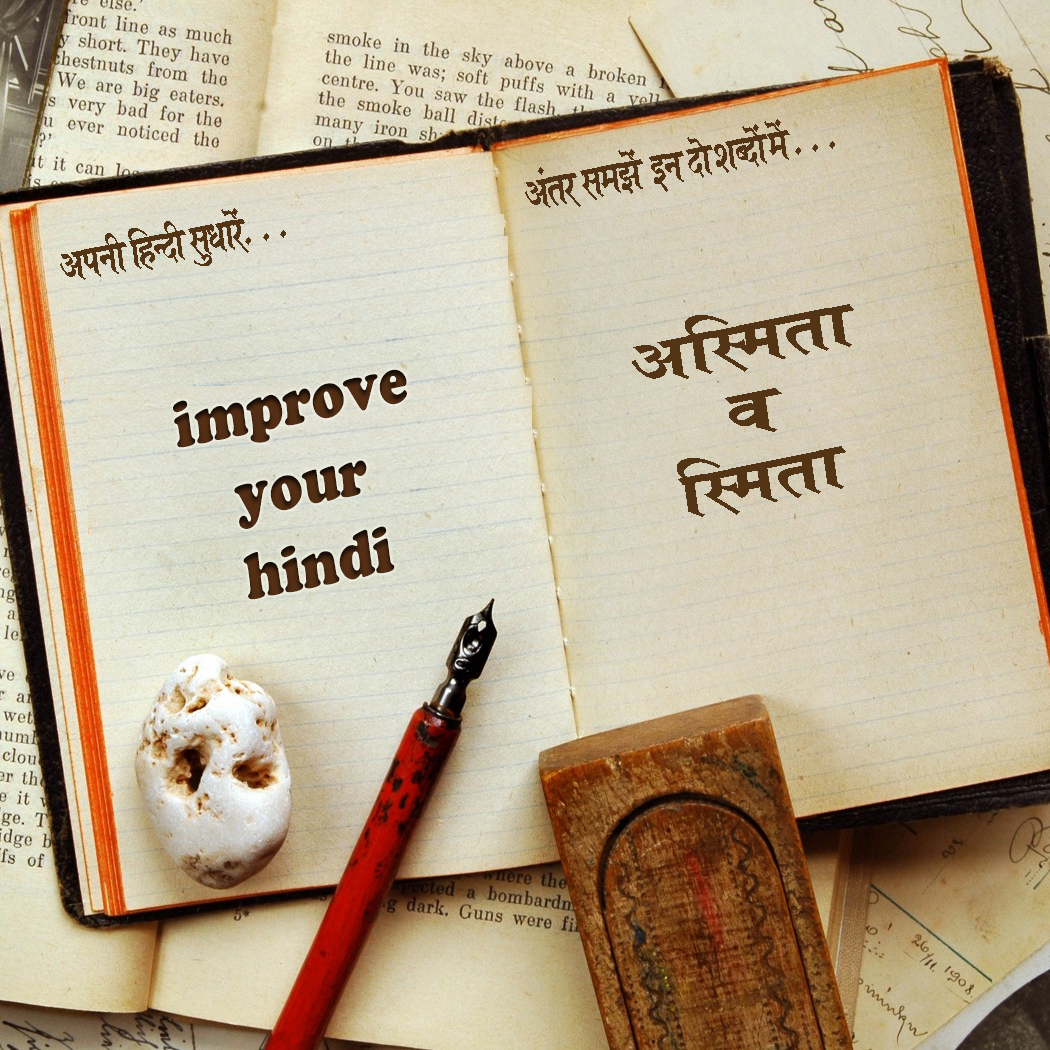 re else.'
front line as much
y short. They have
chestnuts from the
We are big eaters.
s very bad for the
u ever noticed the
?'
smoke in the sky above a broken
the line was; soft puffs with a yell
centre. You saw the flash,
the smoke ball
many iron
on
अपनी हिन्दी सुधारें. . .
improve
your
hindi
अंतर समझें इन दो शब्दों में . . .
अस्मिता
व
स्मिता
where the
a bombardm
g dark. Guns were fi
5*
26/11. 1908.